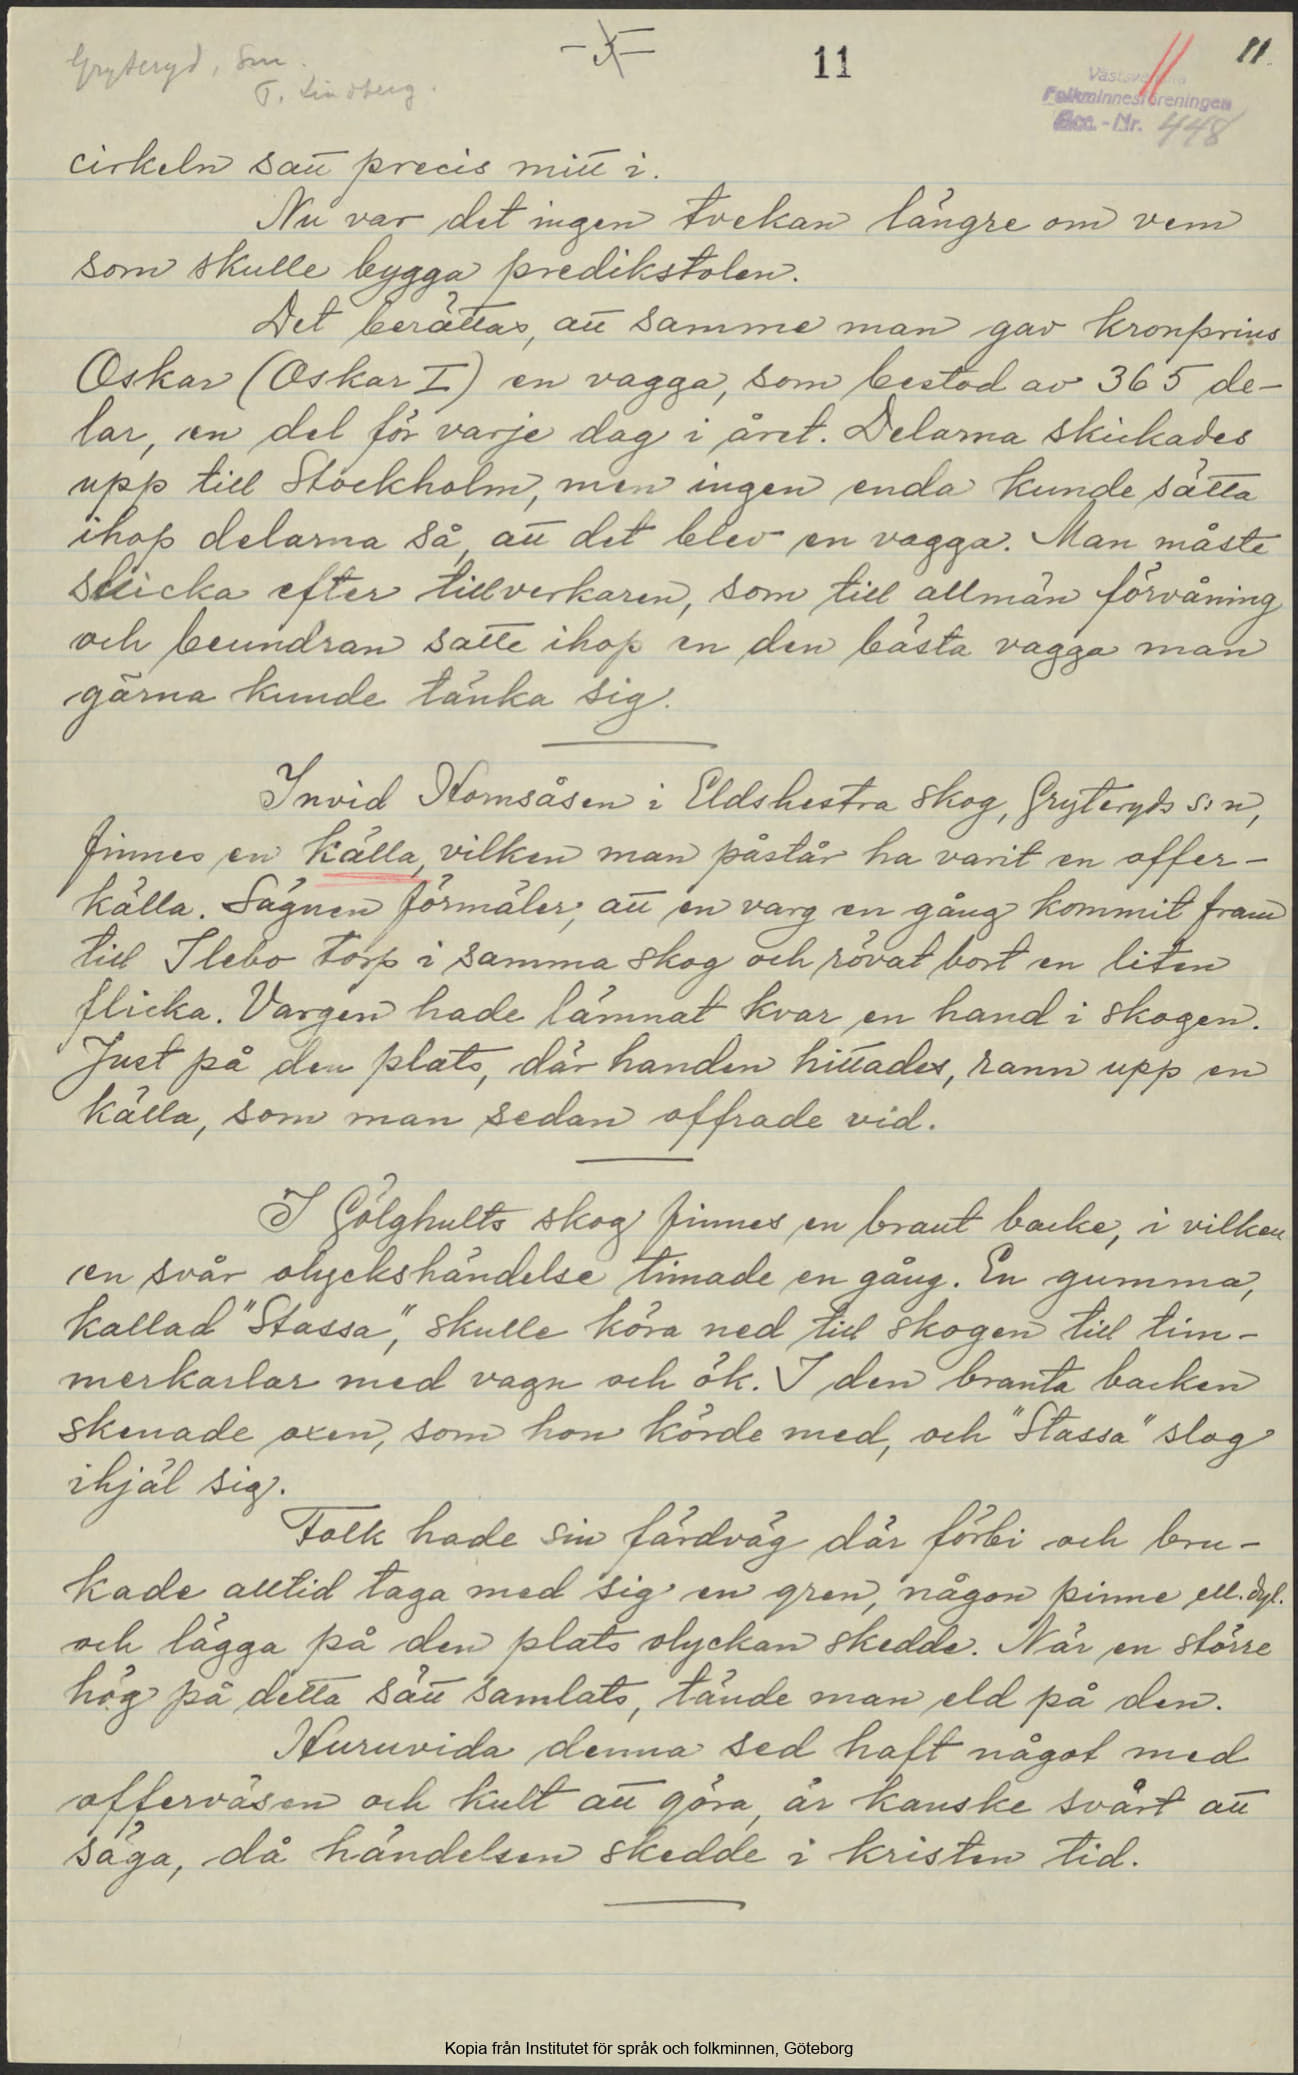 Gryteryd, Sm.
T. Lindberg.
11
11.
Västsvenska
Folkminnesföreningen
Acc. - Nr. 448
cirkeln satt precis mitt i.
Nu var det ingen tvekan längre om vem
som skulle bygga predikstolen.
Det berättas, att samme man gav kronprins
Oskar (Oskar I) en vagga, som bestod av 365 de-
lar, en del för varje dag i året. Delarna skickades
upp till Stockholm, men ingen enda kunde sätta
ihop delarna så, att det blev en vagga. Man måste
skicka efter tillverkaren, som till allmän förvåning
och beundran satte ihop en den bästa vagga man
gärna kunde tänka sig.
Invid Homsåsen i Eldshestra skog, Gryteryds s:n,
finnes en källa, vilken man påstår ha varit en offer-
källa. Sägnen förmäler, att en varg en gång kommit fram
till Ilebo torp i samma skog och rövat bort en liten
flicka. Vargen hade lämnat kvar en hand i skogen.
Just på den plats, där handen hittades, rann upp en
källa, som man sedan offrade vid.
I Gölghults skog finnes en brant backe, i vilken
en svår olyckshändelse timade en gång. En gumma,
kallad "Stassa", skulle köra ned till skogen till tim-
merkarlar med vagn och ök. I den branta backen
skenade oxen, som hon körde med, och "Stassa" slog
ihjäl sig.
Folk hade sin färdväg där förbi och bru-
kade alltid taga med sig en gren, någon pinne ell. dyl.
och lägga på den plats olyckan skedde. När en större
hög på detta sätt samlats, tände man eld på den.
Huruvida denna sed haft något med
offerväsen och kult att göra, är kanske svårt att
säga, då händelsen skedde i kristen tid.
Kopia från Institutet för språk och folkminnen, Göteborg